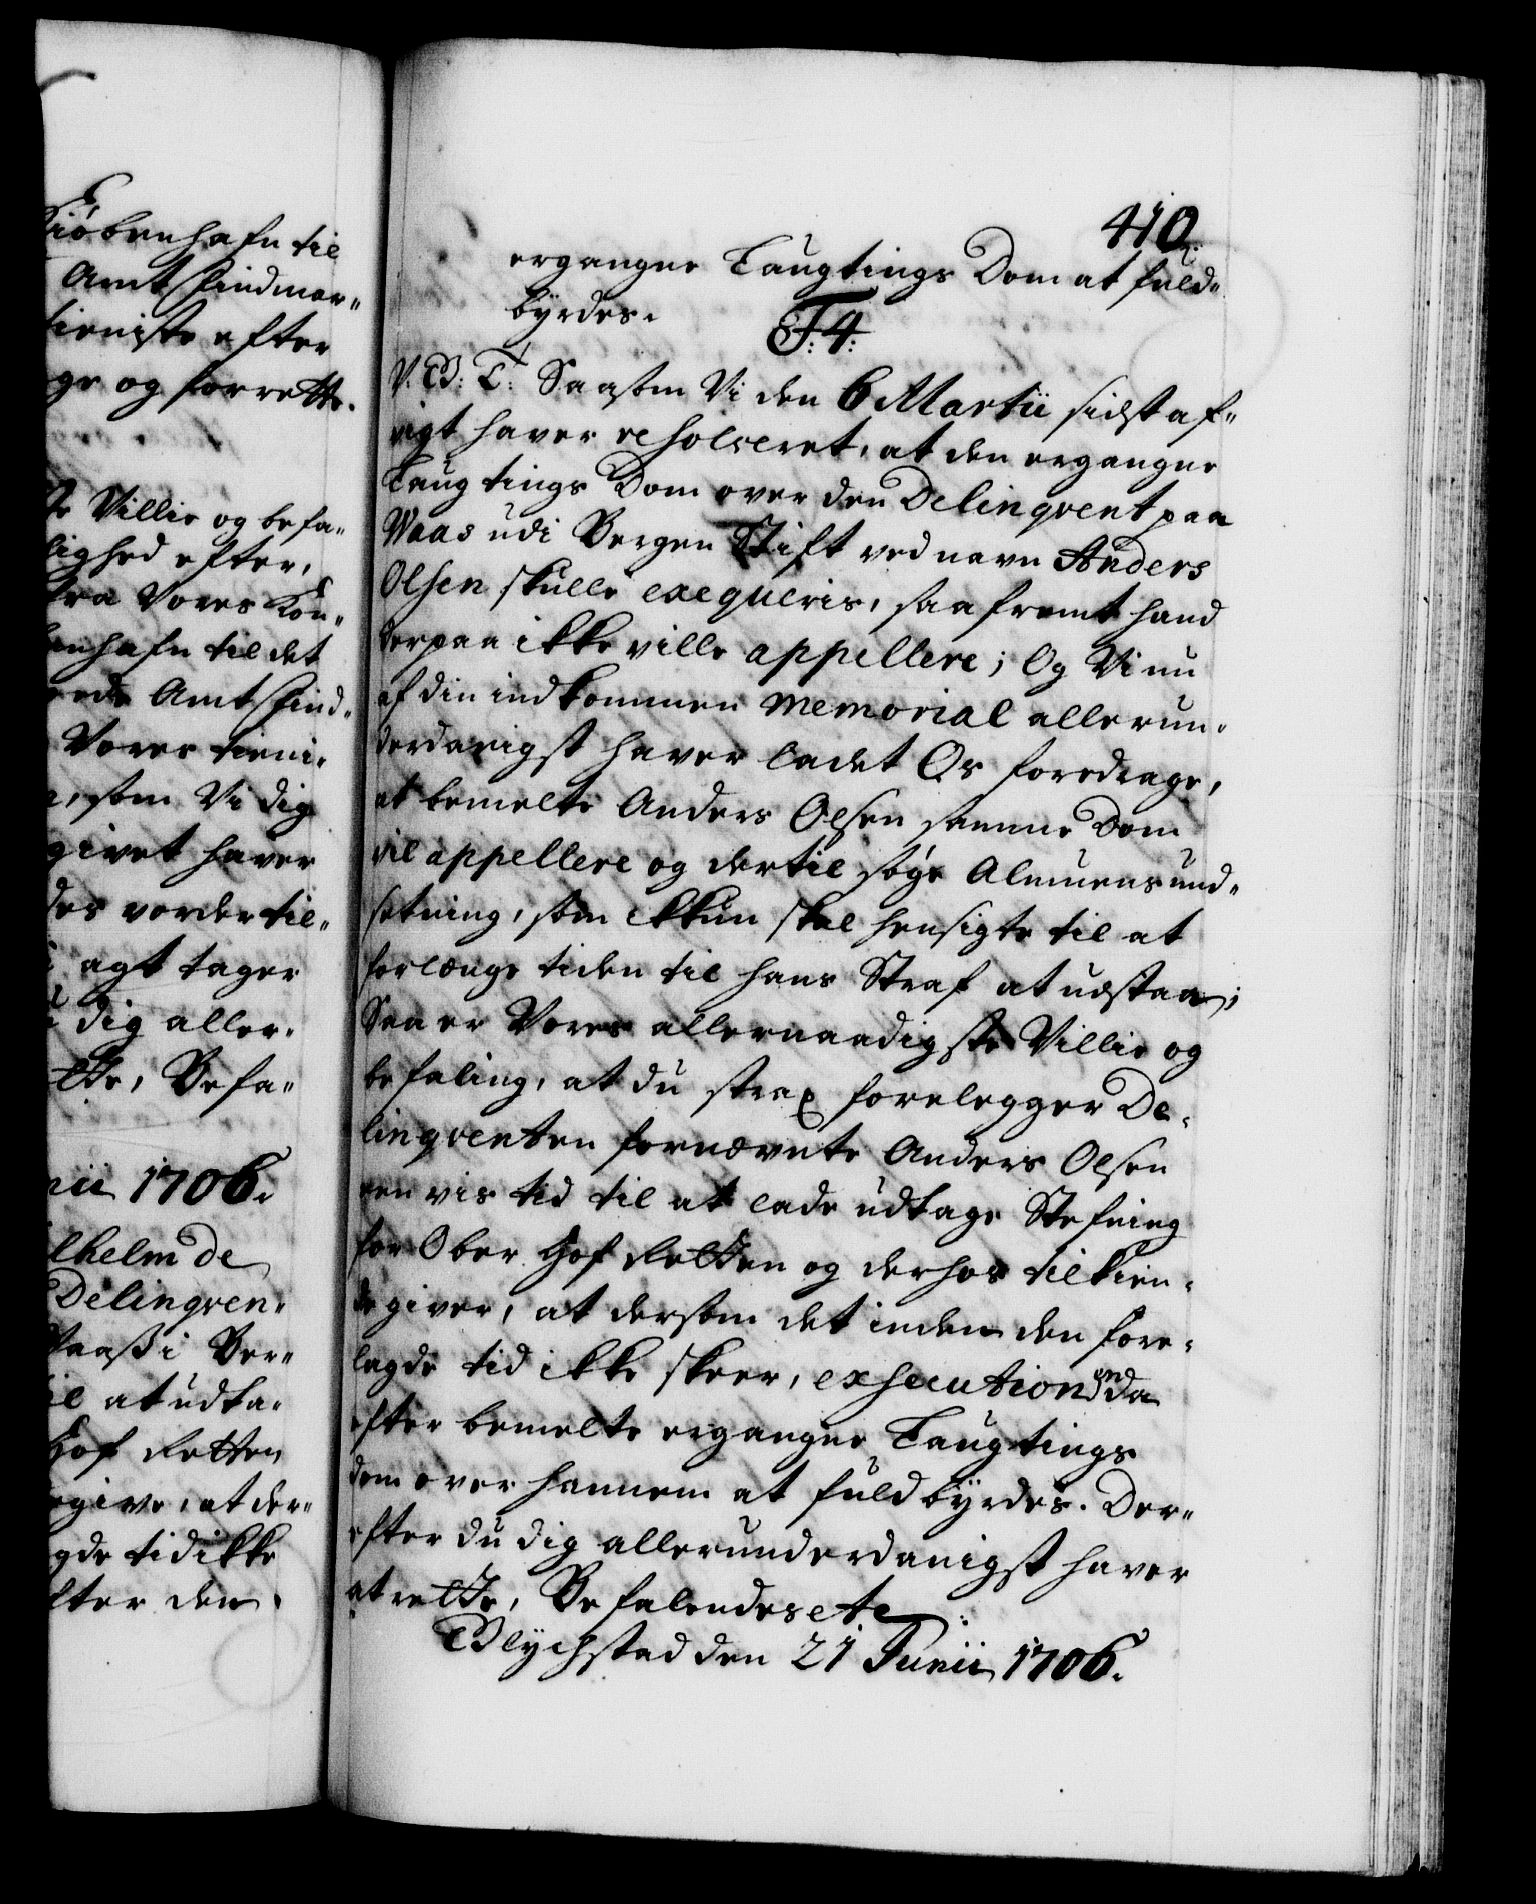 Kiøbenhafn til
Amt Findmar-
tieniste efter
ge og forrette.
te Villie og befa-
lighed efter,
fra Vores Kon-
enhafn til det
Amt Find-
Vores tieni-
som Vi dig
givet haver
des vorder til-
agt tager
dig aller-
tte, Befa-
nii 1706.
lhelm de
Delinqven-
Vaass i Ber-
til at udta-
Hof Retten
give, at der-
gde tid ikke
fter den
410.
ergangne Laugtings Dom at fuld-
byrdes.
F: 4:
V. G: T: Saasom Vi den 6 Martii sidst af-
vigt haver resolveret, at den ergangne
Laugtings Dom over den Delinqvent paa
Waas udi Bergen Stift ved navn Anders
Olsen skulle exeqveris, saa fremt hand
derpaa ikke ville appellere; Og Vi nu
af din indkommen Memorial allerun-
derdanigst haver ladet Os foredrage,
at bemelte Anders Olsen samme Dom
vil appellere og dertil søge Almuens und-
setning, som ikkun skal hensigte til at
forlænge tiden til hans Straf at udstaa;
Saa er Vores allernaadigste Villie og
befaling, at du strax forelegger De-
linqventen fornævnte Anders Olsen
een vis tid til at lade udtage Stefning
for Ober Hof Retten og derhos tilkien-
de giver, at dersom det inden den fore-
lagde tid ikke skeer, exsecutionen da
efter bemelte ergangne Laugtings
dom over hannem at fuldbyrdes. Der-
efter du dig allerunderdanigst haver
at rette, Befalendes etc:
Glychstad den 21 Junii 1706.